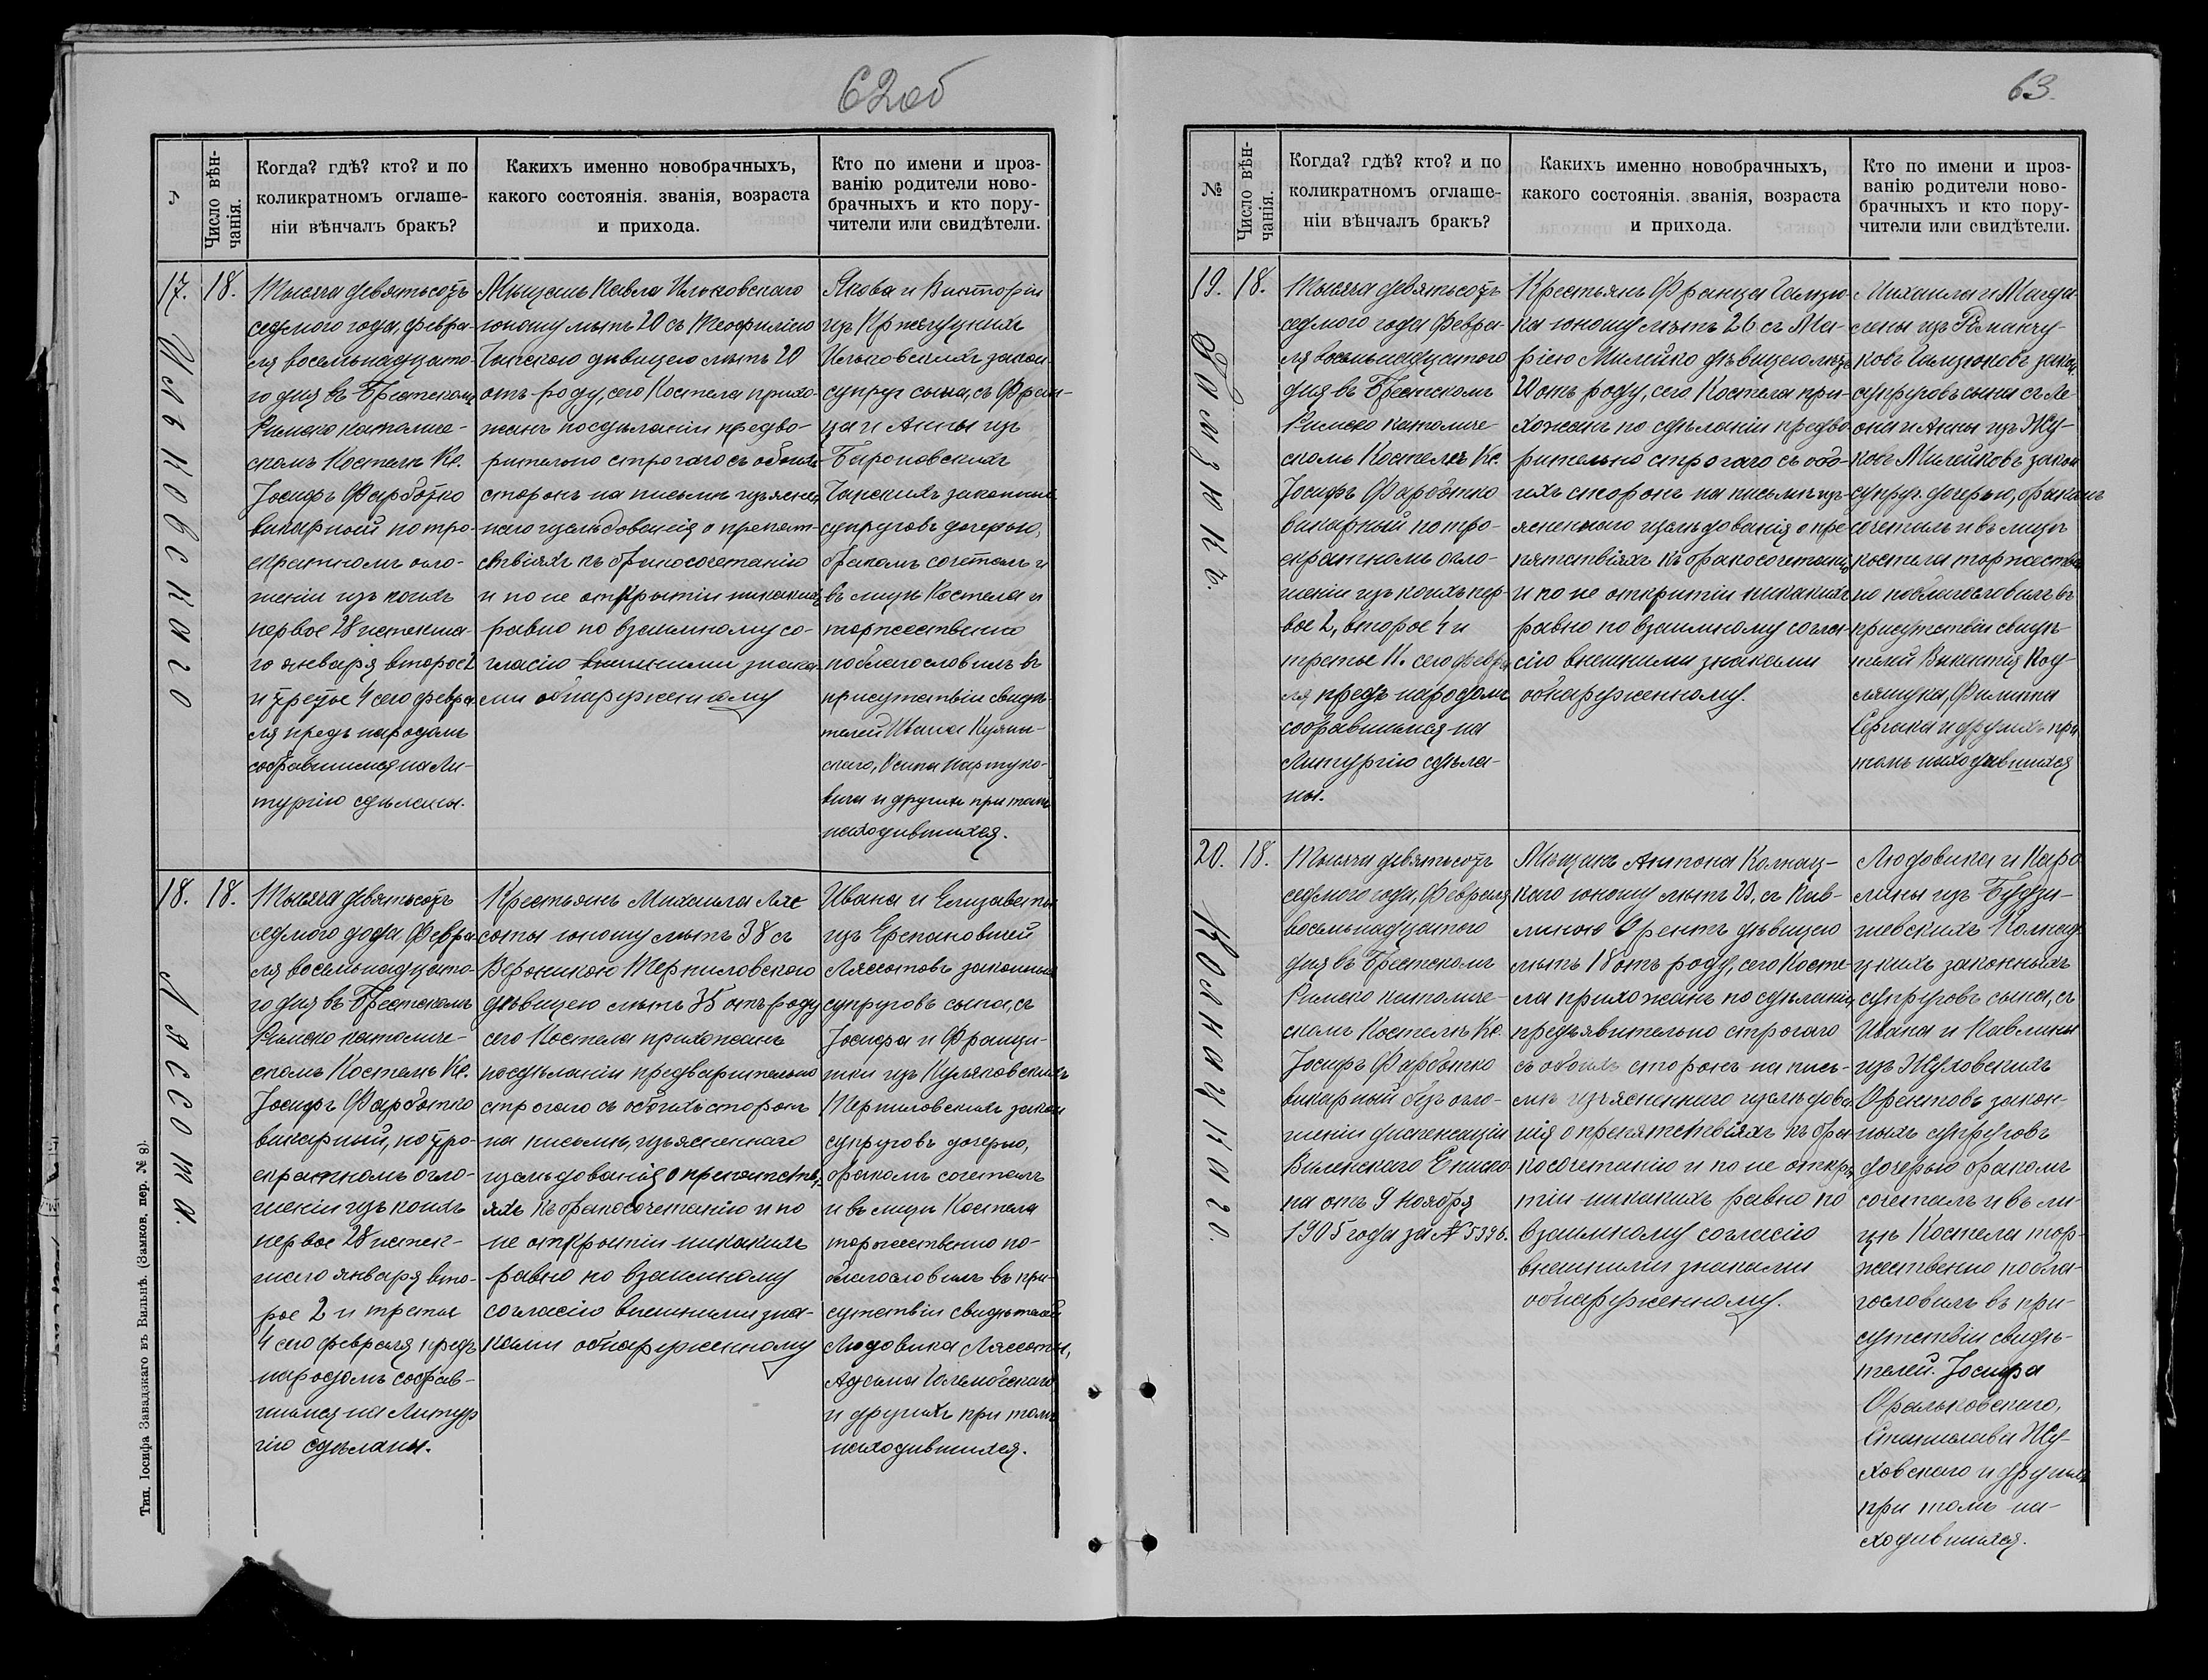 62об
№
Число вѣн-
чанія.
Когда? гдѣ? кто? и по
коликратномъ оглаше-
ніи вѣнчалъ бракъ?
Какихъ именно новобрачныхъ,
какого состоянія. званія, возраста
и прихода.
Кто по имени и проз-
ванію родители ново-
брачныхъ и кто пору-
чители или свидѣтели.
17.
18.
Ильковскаго
Тысяча девятьсотъ
седмого года, февра-
ля восемьнадцато-
го дня въ Брестскомъ
Римско католиче-
скомъ Костелѣ Кс.
Іосифъ Фарботко
викарный по тро-
екратномъ огло-
шеніи изъ коихъ
первое 28 истекша-
го января второе 2
и третое 4 сего февра-
ля предъ народомъ
собравшимся на Ли-
тургію сдѣланы.
Мѣщанъ Павла Ильковскаго
юношу лѣтъ 20 съ Теофилією
Чапскою дѣвицею лѣтъ 20
отъ роду, сего Костела прихо-
жанъ посдѣланіи предво-
рительно строгаго съ обоихъ
сторонъ на письмѣ изъяснен-
наго изслѣдованія о препят-
ствіяхъ къ бракосочетанію
и по не открытіи никакихъ
равно по взаимному со-
гласію внешними знака-
ми обнаруженному
Якова и Викторіи
изъ Кржесуцкихъ
Ильковскихъ закон.
супруг сына, съ Фран-
ца и Анны изъ
Бароновскихъ
Чапскихъ законныхъ
супруговъ дочерью,
бракомъ сочеталъ и
въ лицѣ Костела и
торжественно
поблагословилъ въ
присутствіи свидѣ-
телей Ивана Куянь-
скаго, Осипа Картуно-
вича и другихъ при томъ
находившихся.
18.
18.
Лясcота.
Тысяча девятьсотъ
седмого года Февра-
ля восемьнадцато-
го дня въ Брестскомъ
Римско католиче-
скомъ Костелѣ Кс.
Іосифъ Фарботко
викарный, по тро-
екратномъ огло-
шеніи изъ коихъ
первое 28 истек-
шаго января вто-
рое 2 и третья
4 сего февраля предъ
народомъ собрав-
шимся на Литур
гію сдѣланы.
Крестьянъ Михаила Ляс
соты юношу лѣтъ 38 съ
Вероникою Терпиловскою
дѣвицею лѣтъ 35 отъ роду
сего Костела прихожанъ
посдѣланіи предварительно
строгаго съ обоихъ сторонъ
на письмѣ, изъясненнаго
изслѣдованія о препятстві-
яхъ къ бракосочетанію и по
не открытіи никакихъ
равно по взаимному
согласію внешними зна-
ками обнаруженному
Ивана и Елизаветы
изъ Ерепановичей
Лясcотовъ законныхъ
супруговъ сына, съ
Іосифа и Францы-
шки изъ Куляковскихъ
Терпиловскихъ закон
супруговъ дочерью,
бракомъ сочеталъ
и въ лицѣ Костела
торжественно по-
благословилъ въ при-
сутствіи свидѣтелей
Людовика Лясcоты,
и другихъ при томъ
находившихся.
Тип. Іосифа Завадзкаго въ Вильнѣ. (Замков. пер. № 8).
63.
№
Число вѣн-
чанія.
Когда? гдѣ? кто? и по
коликратномъ оглаше-
ніи вѣнчалъ бракъ?
Какихъ именно новобрачныхъ,
какого состоянія. званія, возраста
и прихода.
Кто по имени и проз-
ванію родители ново-
брачныхъ и кто пору-
чители или свидѣтели.
19.
18.
Гамзюкъ.
Тысяча девятьсотъ
седмого года Февра-
ля восемьнадцатого
дня въ Брестскомъ
Римско католиче
скомъ Костелѣ Кс.
Іосифъ Фарботко
викарный по тро-
екратномъ огло-
шеніи изъ коихъ пер-
вое 2, второе 4 и
третье 11. сего февра-
ля предъ народомъ
собравшимся на
Литургію сдѣла-
ны.
Крестьянъ Франца Гамзю-
ка юношу лѣтъ 26 съ Ма-
рією Милейко дѣвицею лѣтъ
20 отъ роду, сего Костела при-
хожанъ по сдѣланіи предва
рительно строгаго съ обо-
ихъ сторонъ на письмѣ изъ-
ясненнаго изслѣдованія о пре
пятствіяхъ къ бракосочетанію
и по не открытіи никакихъ
равно по взаимному согла-
сію внешними знаками
обнаруженному.
Михаила и Магда-
лены изъ Романчу-
ковъ Гамзюковъ закон
супруговъ сына съ Ле-
она и Анны изъ Жу-
ковъ Милейковъ закон
супруг. дочерью, бракомъ
сочеталъ и въ лицѣ
костела торжествен
но поблагословилъ въ
присутствіи свидѣ-
телей Викентія Код-
лянчука, Филиппа
Сергака и другихъ при
томъ находившихся
20.
18.
Колнацкаго.
Тысяча девятьсотъ
седмого года, Февраля
восемьнадцатого
дня въ Брестскомъ
Римско католиче-
скомъ Костелѣ Кс.
Іосифъ Фарботко
викарный безъ огло-
шеніи диспенсаціи
Виленскаго Еписко
па отъ 9 ноября
1905 года за № 5396.
Мѣщанъ Антона Колнац-
каго юношу лѣтъ 23, съ Пав-
линою Орентъ дѣвицею
лѣтъ 18 отъ роду, сего Косте-
ла прихожанъ по сдѣланіи
предъявительно строгаго
съ обоихъ сторонъ на пись-
мѣ изъясненнаго изслѣдова
нія о препятствіяхъ къ бра-
косочетанію и по не откры-
тіи никакихъ равно по
взаимному согласію
внешними знаками
обнаруженному.
Людовика и Каро
лины изъ Будзи-
шевскихъ Колнац-
цкихъ законныхъ
супруговъ сына, съ
Ивана и Павлины
изъ Жуловскихъ
Орентовъ закон-
ныхъ супруговъ
дочерью бракомъ
сочеталъ и въ ли-
цѣ Костела тор-
жественно побла-
гословилъ въ при-
сутствіи свидѣ-
телей. Іосифа
Оральковскаго,
Станислава Жу-
ховскаго и другихъ
при томъ на-
ходившихся.